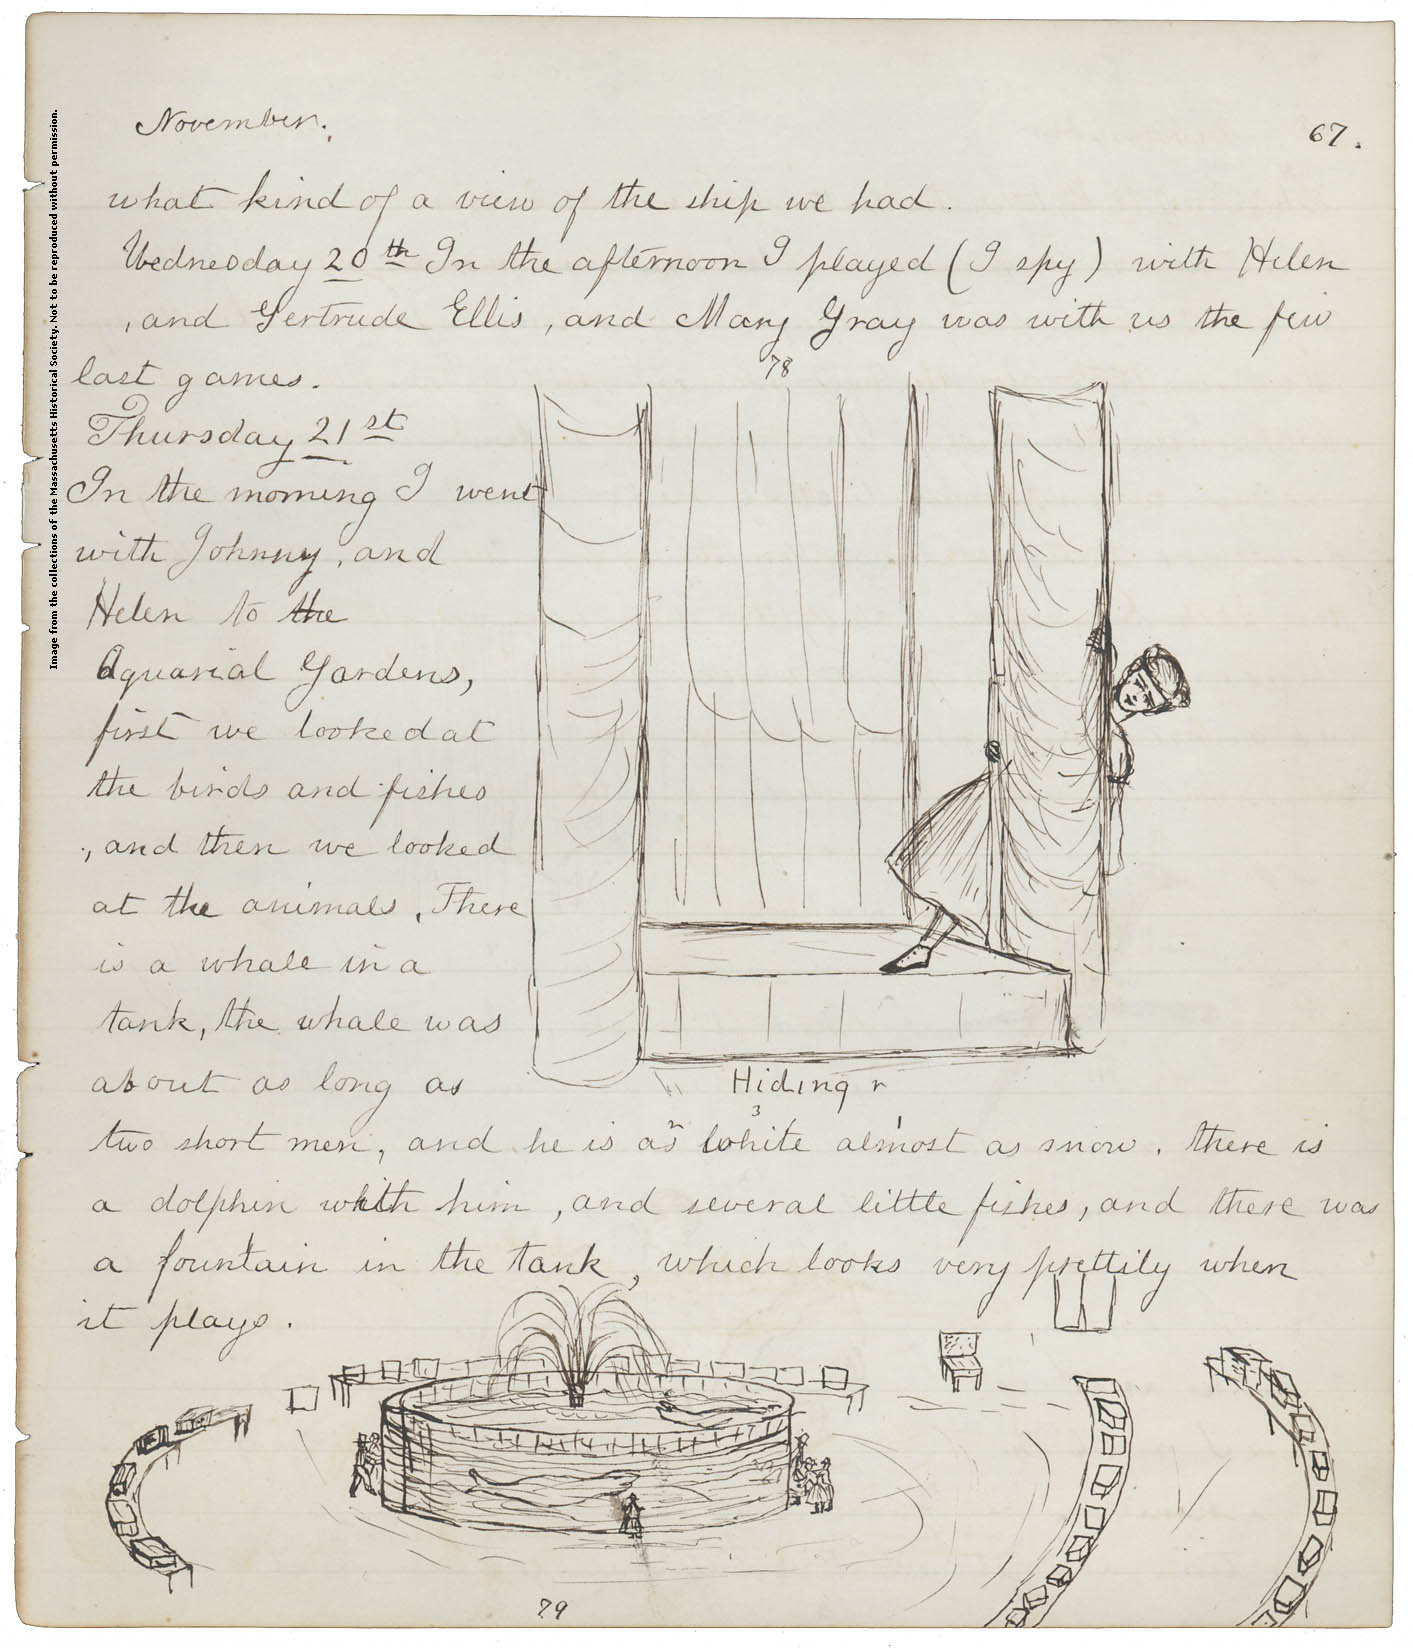 November.
67.
what kind of a view of the ship we had.
Wednesday 20th In the afternoon I played (I spy) with Helen
, and Gertrude Ellis, and Mary Gray was with us the few
last games.
78
Thursday 21st
In the morning I went
with Johnny, and
Helen to the
Aquarial Gardens,
first we looked at
the birds and fishes
, and then we looked
at the animals. There
is a whale in a
tank, the whale was
about as long as
Hiding
two short men, and he is as 2 white 3 almost 1 as snow. there is
a dolphin with him, and several little fishes, and there was
a fountain in the tank, which looks very prettily when
it plays.
79
Image from the collections of the Massachusetts Historical Society. Not to be reproduced without permission.